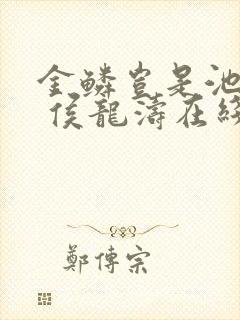 金鱗豈是池
侯龍濤在綫
鄭傳宗